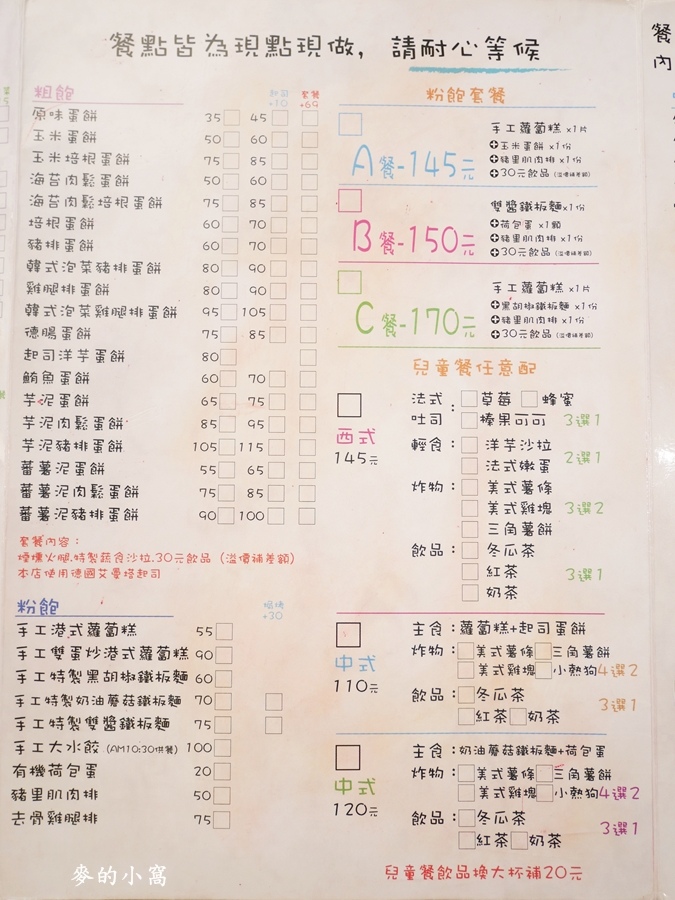 餐點皆為現點現做，請耐心等候
粗飽 起司+10 套餐+69
原味蛋餅 35 45
玉米蛋餅 50 60
玉米培根蛋餅 75 85
海苔肉鬆蛋餅 50 60
海苔肉鬆培根蛋餅 75 85
培根蛋餅 60 70
豬排蛋餅 60 70
韓式泡菜豬排蛋餅 80 90
雞腿排蛋餅 80 90
韓式泡菜雞腿排蛋餅 95 105
德腸蛋餅 75 85
起司洋芋蛋餅 80
鮪魚蛋餅 60 70
芋泥蛋餅 65 75
芋泥肉鬆蛋餅 85 95
芋泥豬排蛋餅 105 115
蕃薯泥蛋餅 55 65
蕃薯泥肉鬆蛋餅 75 85
蕃薯泥豬排蛋餅 90 100
套餐內容：
煙燻火腿.特製蔬食沙拉.30元飲品（溢價補差額）
本店使用德國艾曼塔起司
粉飽 +30
手工港式蘿蔔糕 55
手工雙蛋炒港式蘿蔔糕 90
手工特製黑胡椒鐵板麵 60
手工特製奶油蘑菇鐵板麵 70
手工特製雙醬鐵板麵 75
手工大水餃(AM10:30供餐) 100
有機荷包蛋 20
豬里肌肉排 50
去骨雞腿排 75
粉飽套餐
A餐-145元
手工蘿蔔糕x1片
+玉米蛋餅x1份
+豬里肌肉排x1份
+30元飲品(溢價補差額)
B餐-150元
雙醬鐵板麵x1份
+荷包蛋x1顆
+豬里肌肉排x1份
+30元飲品(溢價補差額)
C餐-170元
手工蘿蔔糕x1片
+黑胡椒鐵板麵x1份
+豬里肌肉排x1份
+30元飲品(溢價補差額)
兒童餐任意配
西式
145元
法式吐司：草莓 蜂蜜
榛果可可 3選1
輕食：洋芋沙拉
法式嫩蛋 2選1
炸物：美式薯條
美式雞塊 3選2
三角薯餅
飲品：冬瓜茶
紅茶 3選1
奶茶
中式
110元
主食：蘿蔔糕+起司蛋餅
炸物：美式薯條 三角薯餅
美式雞塊 小熱狗 4選2
飲品：冬瓜茶
紅茶 奶茶 3選1
中式
120元
主食：奶油蘑菇鐵板麵+荷包蛋
炸物：美式薯條 三角薯餅
美式雞塊 小熱狗 4選2
飲品：冬瓜茶
紅茶 奶茶 3選1
兒童餐飲品換大杯補20元
麥的小窩
餐
內